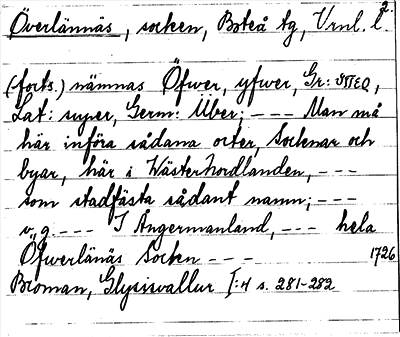 Överlännäs, socken, Boteå tg, Vrnl. l. 2.
(forts.) nämnas Öfwer, yfwer, Gr: ὑπερ,
Lat: super, Germ: Über; --- Man må
här införa sådana orter, Socknar och
byar, här i Wästerhordlanden, ---
som stadfästa sådant namn; ---
v. g. --- I Angermanland, --- hela
Öfwerlänäs Socken --- 1726
Broman, Glysisvallur I:4 s. 281-282